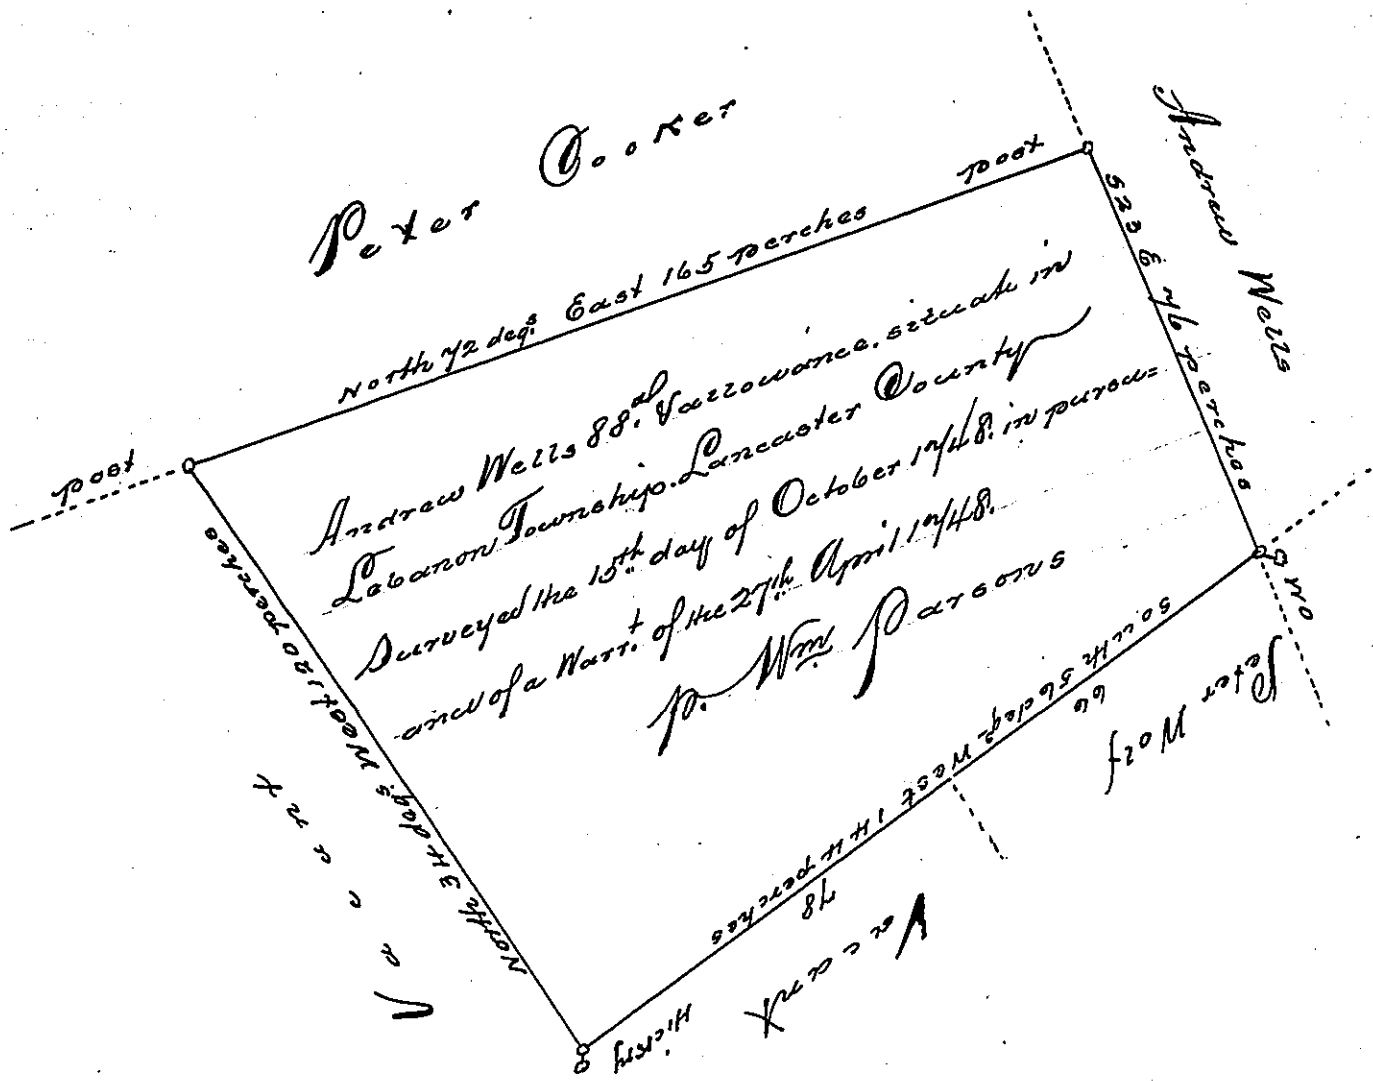 Peter Cooker
Andrew Wells
post
North 72 deg.s East 165 perches
post
S 23 E 76 perches
Andrew Wells 88.a & allowance. situate in
Lebanon Township. Lancaster County
Surveyed the 15th day of October 1748. in pursu=
ance of a Warr.t of the 27th April 1748.
p. Wm. Parsons
W O
Peter Wolf
South 56 deg.s West 144 perches
66
78
Vacant
Hickry
North 34 deg.s West 120 perches
Vacant